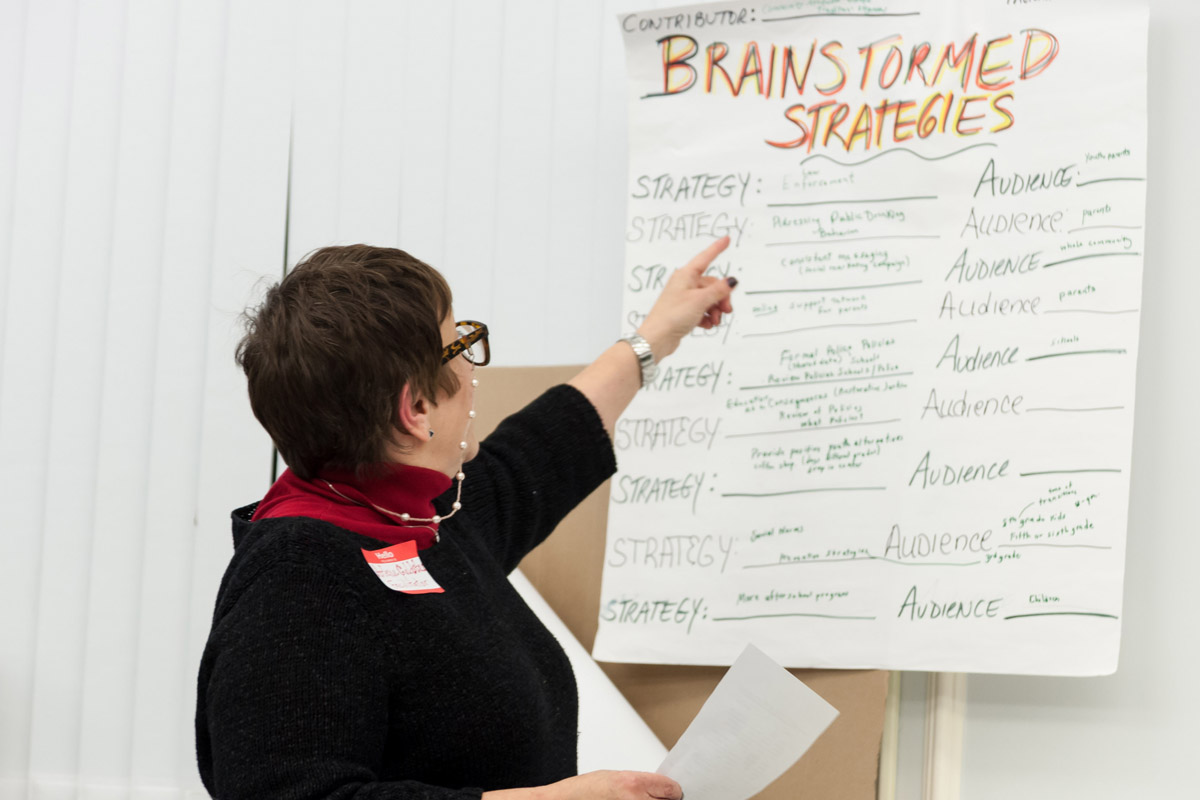 CONTRIBUTOR:
BRAINSTORMED
STRATEGIES
STRATEGY: Law Enforcement AUDIENCE: Youth parents
STRATEGY: Addressing Public Drinking Behavior Audience: parents
STRATEGY: Consistent messaging (social marketing campaign) AUDIENCE whole community
support network for parents Audience parents
STRATEGY: Formal Police Policies (shared data) Schools Review Policies Schools/Police Audience schools
STRATEGY Education as a Consequences (Restorative Review of Policies what Policies? Audience
STRATEGY: Provide positive youth alternatives drop in center Audience
STRATEGY: Social Norms Promotion Strategies Audience 5th grade kids Fifth or sixth grade 3rd grade
STRATEGY: More afterschool program AUDIENCE Children
Hello